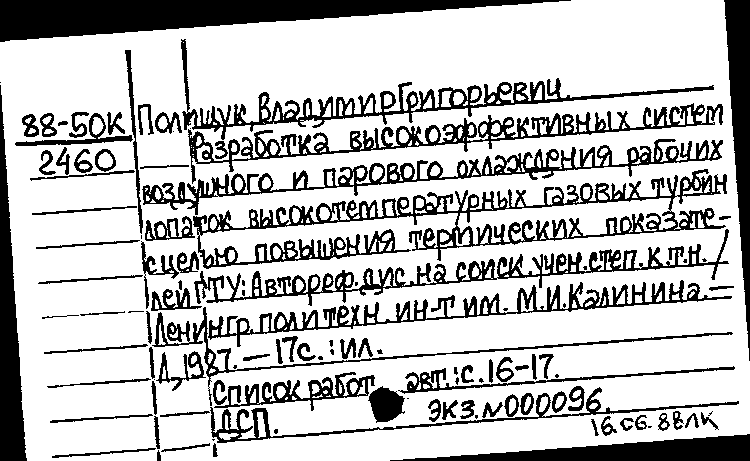 88-50К
2460
Полищук, Владимир Григорьевич.
Разработка высокоэффективных систем
воздушного и парового охлаждения рабочих
лопаток высокотемпературных газовых турбин
с целью повышения термических показате-
лей ГТУ: Автореф. дис. на соиск. учен. степ. к.т.н. /
Ленингр. политехн. ин-т им. М.И. Калинина. —
Л., 1987. — 17с. : ил.
Список работ авт.: с. 16-17.
ДСП. Экз. №000096.
16.06.88 ЛК